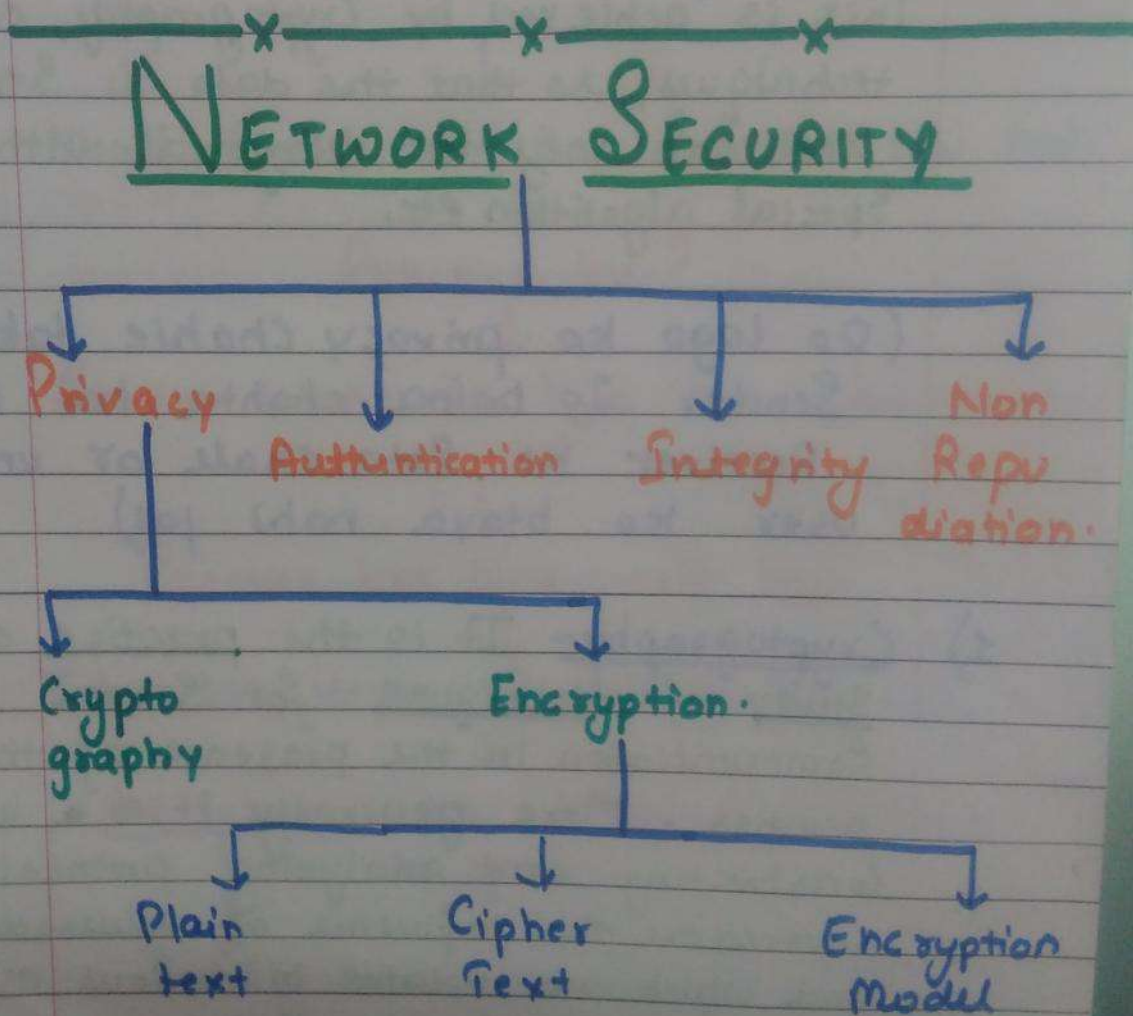 NETWORK SECURITY
Privacy
Authentication
Integrity
Non
Repu
diation.
Crypto
graphy
Encryption.
Plain
text
Cipher
Text
Encryption
Model